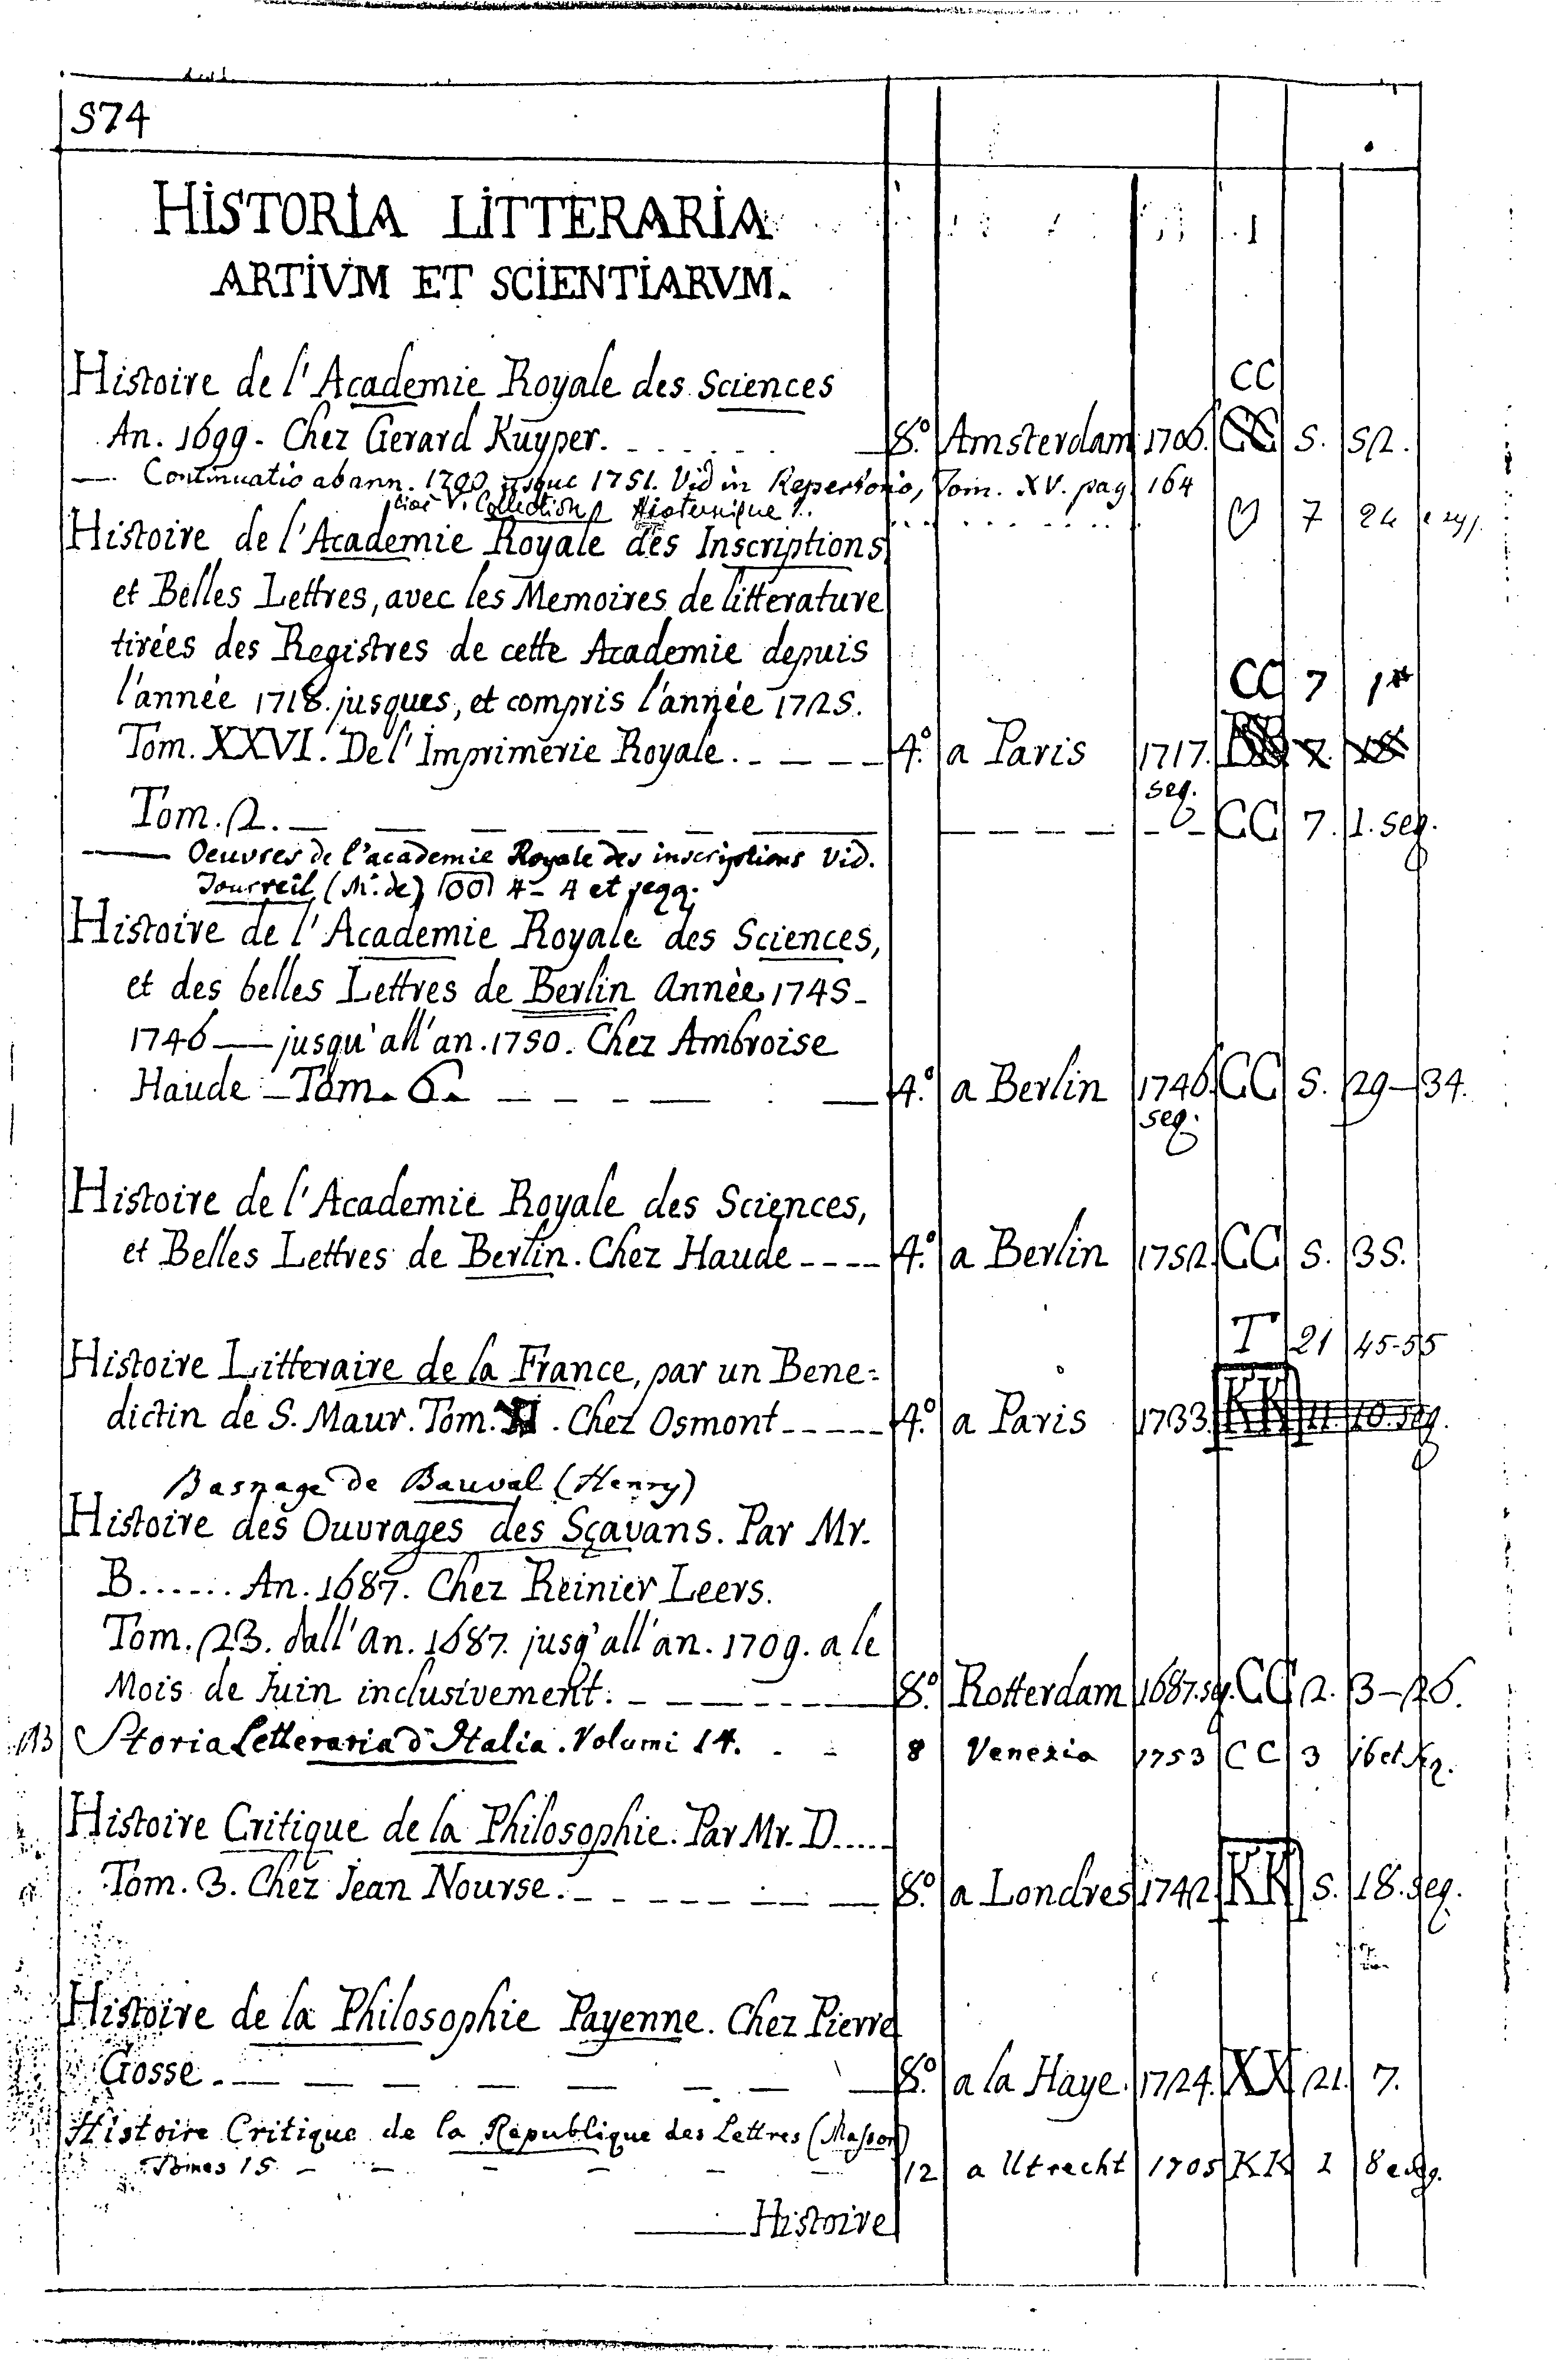 574
HISTORIA LITTERARIA
ARTIVM ET SCIENTIARVM.
CC
Histoire de l'Academie Royale des Sciences
An. 1699. Chez Gerard Kuyper. 8.° Amsterdam 1706. CC 5. 52.
— Continuatio ab ann. 1700 usque 1751. Vid in Repertorio, Tom. XV. pag 164
V. Collection 7 24
Histoire de l'Academie Royale des Inscriptions
et Belles Lettres, avec les Memoires de litterature
tirées des Registres de cette Academie depuis
l'année 1718. jusques, et compris l'année 1725. CC 7 1
Tom. XXVI. De l'Imprimerie Royale. 4.° a Paris 1717. seq.
Tom. 2. CC 7. 1. seq.
— Oeuvres de l'academie Royale des inscriptions Vid.
Tourreil (Mr. de) OO 4 - 4 et seqq.
Histoire de l'Academie Royale des Sciences,
et des belles Lettres de Berlin Année 1745-
1746 — jusqu'all'an. 1750. Chez Ambroise
Haude — Tom. 6. 4.° a Berlin 1746. seq. CC 5. 29-34.
Histoire de l'Academie Royale des Sciences,
et Belles Lettres de Berlin. Chez Haude 4.° a Berlin 1752. CC 5. 35.
T 21 45-55
Histoire Litteraire de la France, par un Bene=
dictin de S. Maur. Tom. . Chez Osmont 4.° a Paris 1733. KK 11 10. seq.
Basnage de Bauval (Henry)
Histoire des Ouvrages des Sçavans. Par Mr.
B...... An. 1687. Chez Reinier Leers.
Tom. 23. dall'an. 1687. jusq'all'an. 1709. a le
Mois de Juin inclusivement. 8.° Rotterdam 1687. sq. CC 2. 3-26.
Storia Letteraria d'Italia. Volumi 14. 8 Venezia 1753 CC 3 16 et seq.
Histoire Critique de la Philosophie. Par Mr. D.....
Tom. 3. Chez Jean Nourse. 8.° a Londres 1742. KK 5. 18. seq.
Histoire de la Philosophie Payenne. Chez Pierre
Gosse. 8.° a la Haye. 1724. XX 21. 7.
Histoire Critique de la Republique des Lettres (Masson)
Tomes 15 12 a Utrecht 1705 KK 1 8 e seg.
Histoire